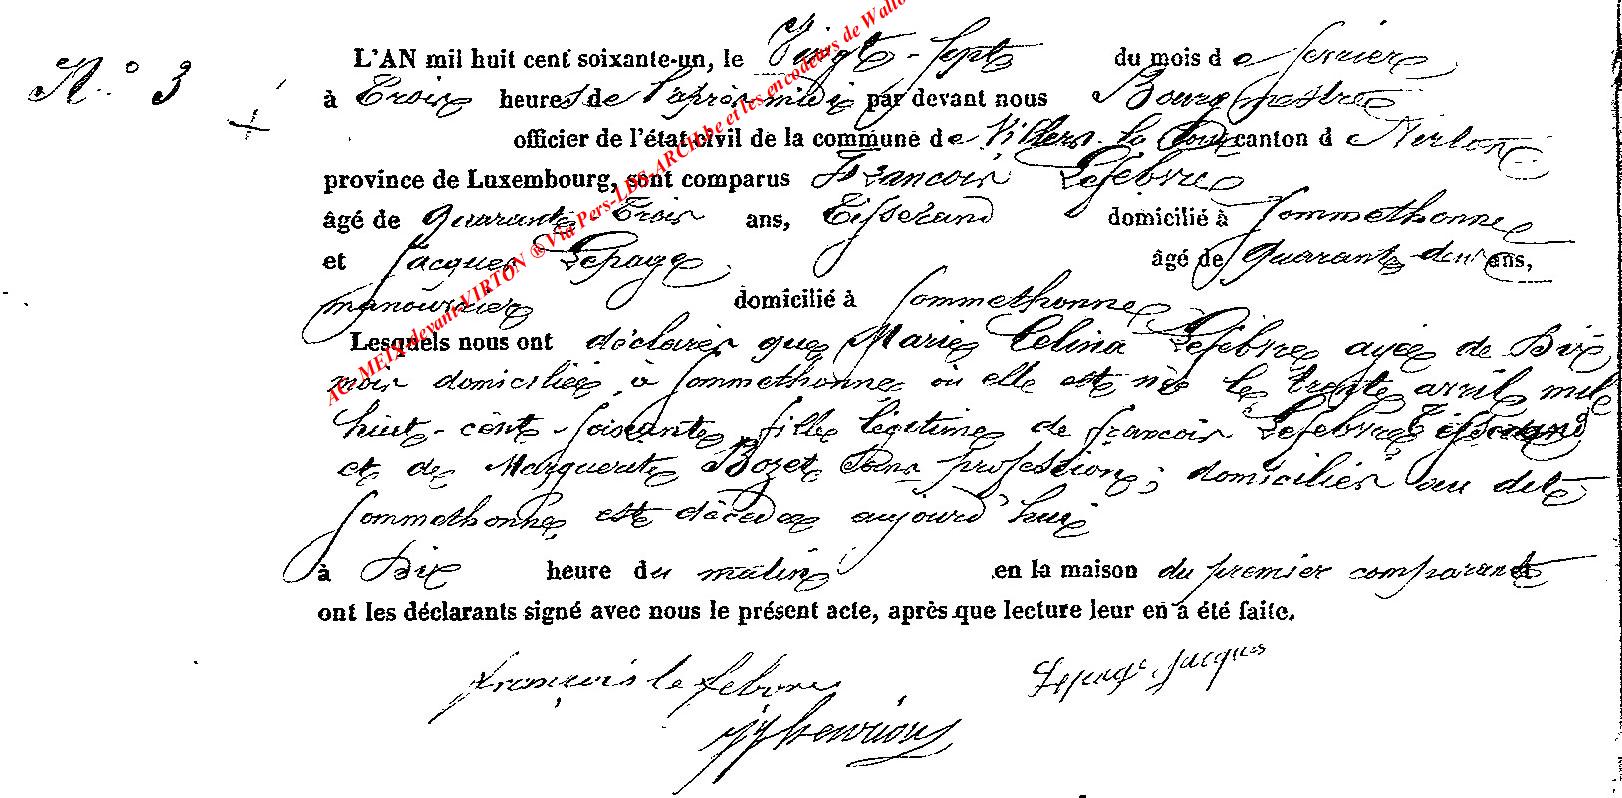 N.° 3
L'AN mil huit cent soixante-un, le Vingt-Sept du mois de fevrier
à Trois heures de l'après midi par devant nous Bourgmestre
officier de l'état civil de la commune de Villers-la-Loue canton de Virton
province de Luxembourg, sont comparus François Lefèbvre
âgé de Quarante-Trois ans, Tisserand domicilié à Sommethonne
et Jacques Lepage âgé de Quarante-deux ans,
manouvrier domicilié à Sommethonne
Lesquels nous ont déclarés que Marie Celina Lefébvre agée de Dix
mois domiciliée à Sommethonne où elle est née le trente avril mil
huit-cent-soixante, fille légitime de françois Lefebvre Tisserand
et de Marguerite Bozet Sans profession; domiciliés au dit
Sommethonne est décédée aujourd'hui
à Dix heure du matin en la maison du premier comparant et
ont les déclarants signé avec nous le présent acte, après que lecture leur en a été faite.
françois lefebvre Lepage Jacques
AC. MEIX devant VIRTON ® Via Pers-LES-ARCH.be et les encodeurs de Wallo